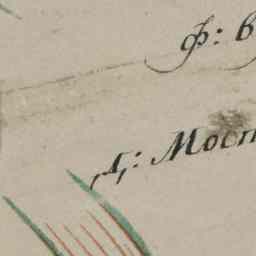 ф: в
Д: Мост